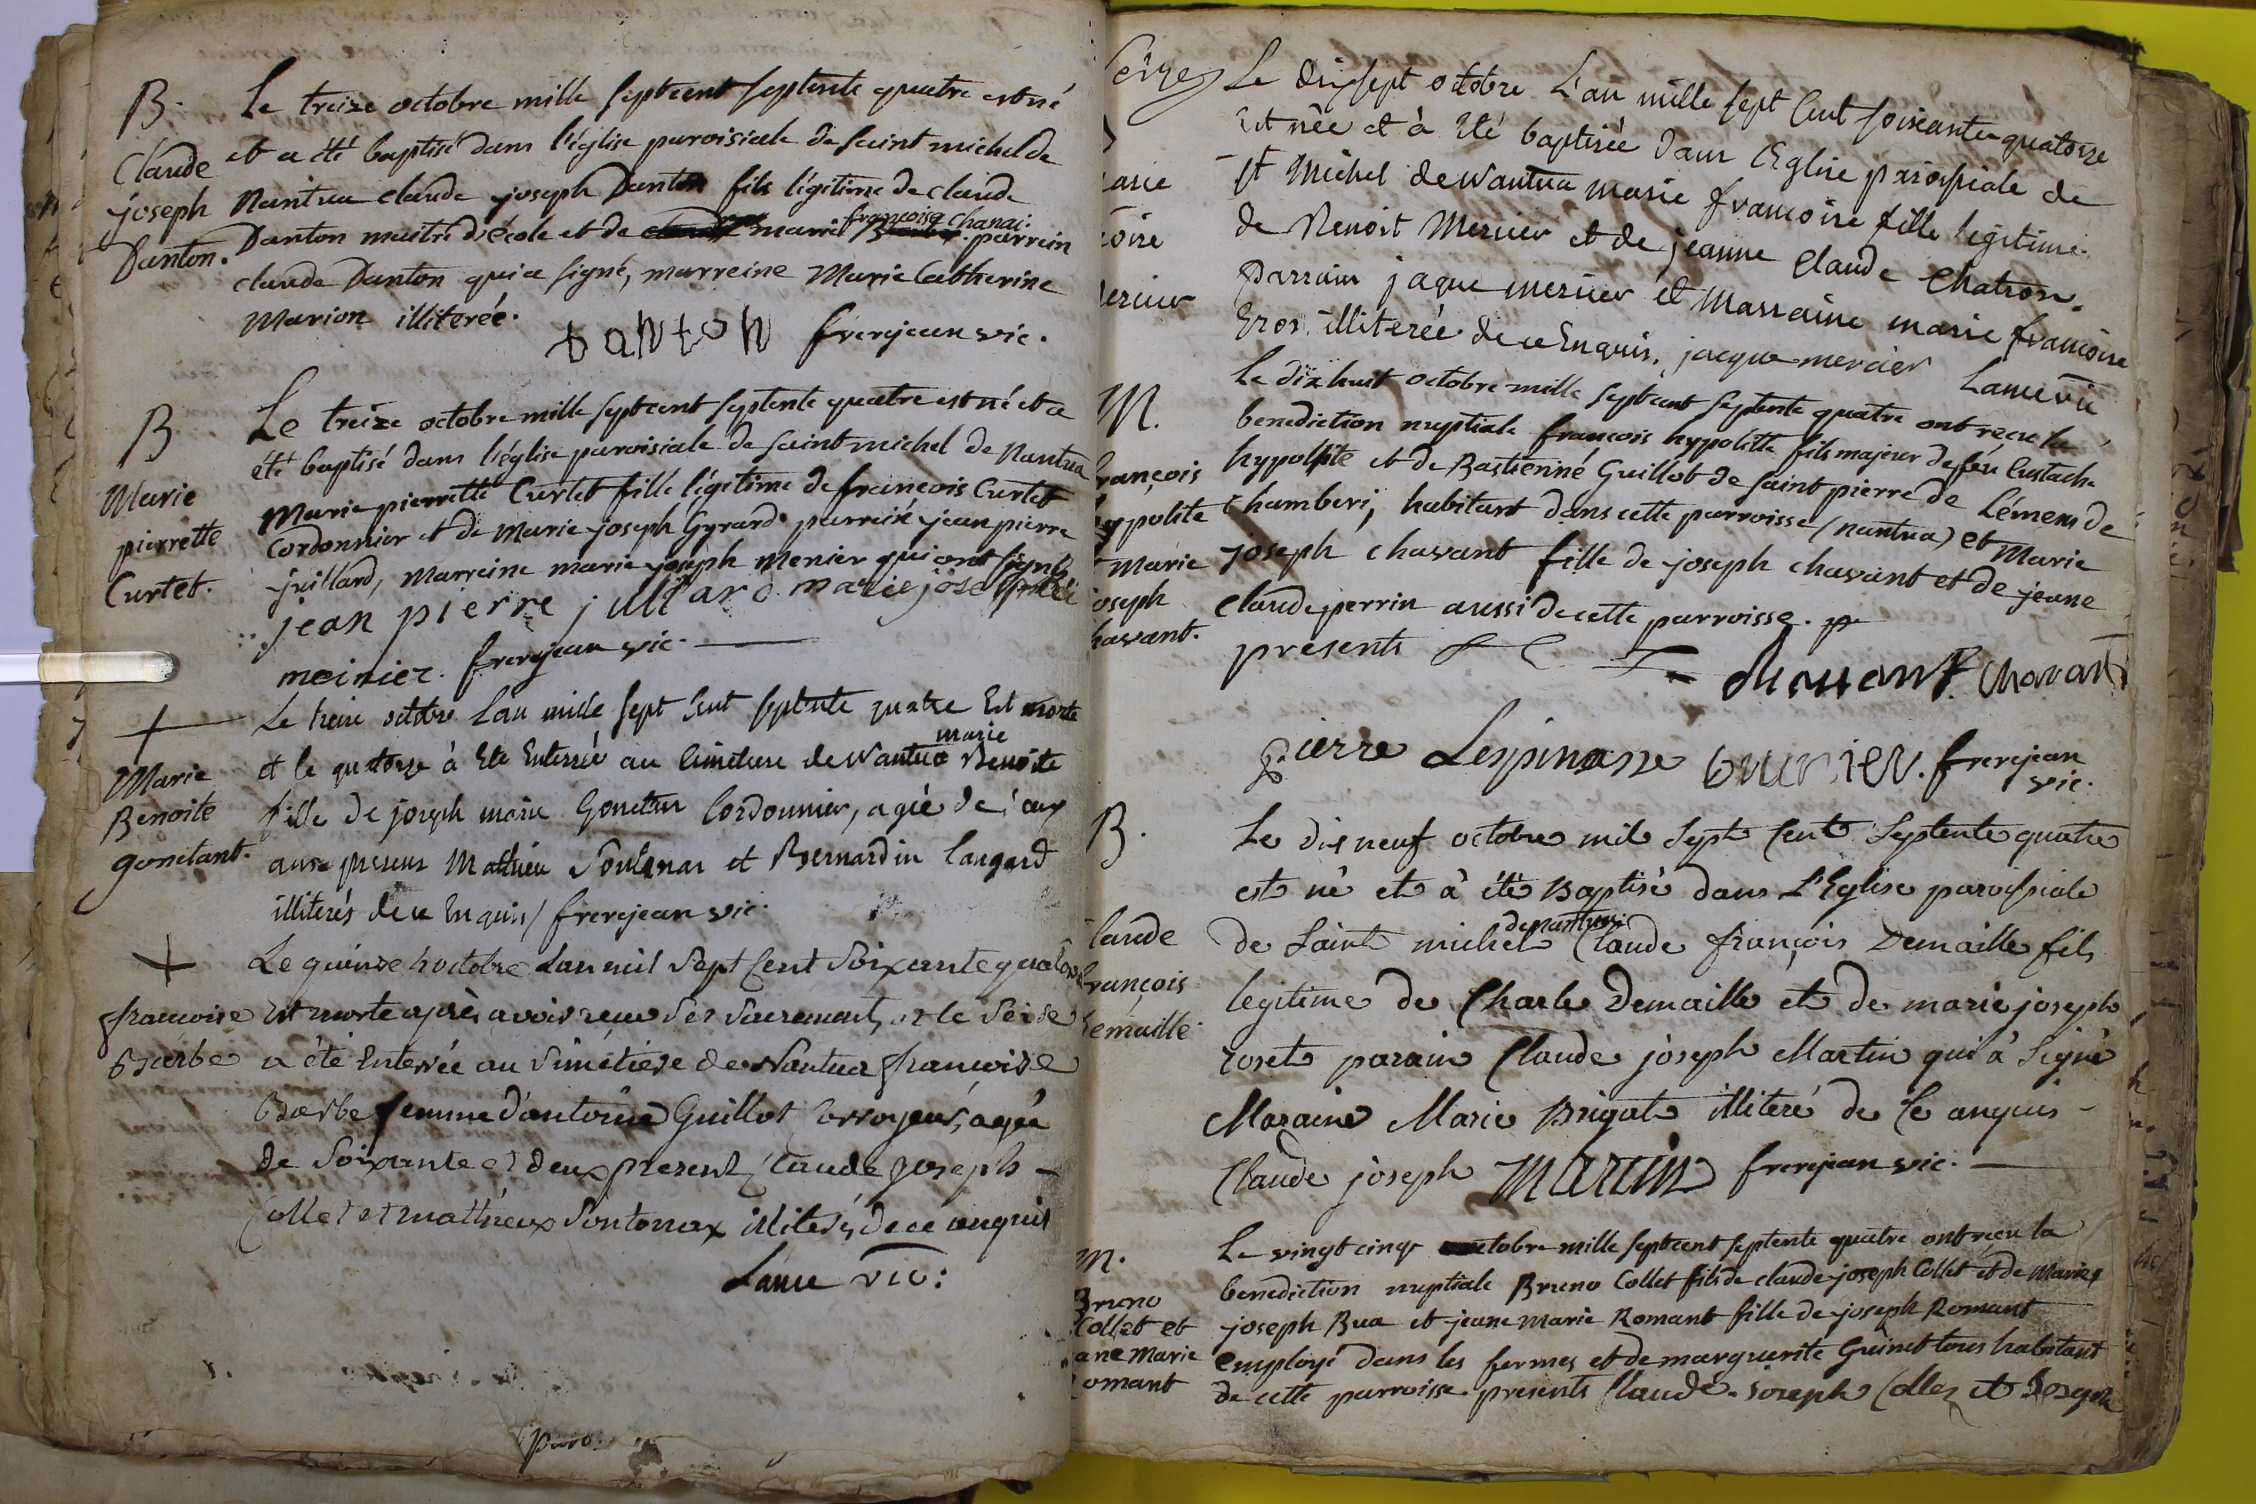 B.
Claude
joseph
Danton.
Le treize octobre mille septcent septente quatre est né
et a été baptisé dans l'église paroisiale de saint michel de
Nantua claude joseph Danton fils légitime de claude
Danton maitre d'école et de marie françoise Chanai. parrein
claude Danton qui a signé, marreine Marie Catherine
Marion illiterée.
danton frerejean vic.
B
Marie
pierrette
Curtet.
Le treize octobre mille septcent septente quatre est né et a
été baptisé dans l'église paroisiale de saint michel de Nantua
Marie pierrette Curtet fille légitime de françois Curtet
Cordonnier et de Marie joseph Gyrard parrein jean pierre
juillard, Marreine marie joseph Menier qui ont signé
jean pierre julliard marie josephte
meinier. frerejean vic.
+
Marie
Benoite
gonetant.
Le treize octobre L'an mille sept Cent septente quatre Est morte
et le quatorze à Eté Enterrée au Cimetiere de Nantua marie Benoite
fille de joseph marie Gonetan Cordonnier, agée de
ans presens Mathieu Sontonax et Bernardin Langard
illiterés de ce Enquis / frerejean vic.
+
francoise
Barbe
Le quinze 8octobre L'an mil Sept Cent Soixante quatorze
Est morte après avoir reçeu Ses Sacrements, et le Seise
a été Enterrée au Simétiere de Nantua françoise
Barbe femme d'antoine Guillot Corroyeur, agée
de Soixante et deux present Claude Joseph
Collet et mathieux Sontonax illiterés de ce anquis
Lance vic:
paro.
Seize
Le dixsept octobre L'an mille sept Cent soixante quatorze
Est née et à Eté baptisée dans l'Eglise paroissiale de
St Michel de Nantua marie françoise fille legitime
de Benoit Mercier et de jeanne Claude Chatron.
Parrain jaque mercier et Marraine marie françoise
Eros illiterée de ce Enquis. jacque mercier Lance vic
arie
çoise
ercier
M.
françois
hypolite
et Marie
joseph
havant.
Le dix huit octobre mille septcent septente quatre ont reçu la
benediction nuptiale françois hypolitte fils majeur de feu Eustache
hypolitte et de Bastienne Guillot de saint pierre de Lémens de
Chamberi, habitant dans cette parroisse (nantua) et Marie
joseph chavant fille de joseph chavant et de jeane
claude perrin aussi de cette parroisse.
presents
chavant. Chavant
pierre Lespinasse frerejean
vic.
B.
laude
françois
emaille.
Le dix neuf octobre mil Sept Cent Septente quatre
est né et à été Baptisé dans L'Eglise paroissiale
de Saint michel de nantua Claude françois Demaille fils
legitime de Charle Demaille et de marie joseph
roset parain Claude joseph Martin qui à Signé
Maraine Marie Brigat illiteré de Ce anquis
Claude joseph Martin frerejean vic.
M.
Bruno
Collet et
ane Marie
omant
Le vingt cinq octobre mille septcent septente quatre ont reçu la
benediction nuptiale Bruno Collet fils de claude joseph Collet et de Marie
joseph Bua et jeane Marie Romant fille de joseph Romant
employé dans les fermes et de marguerite Guinet tous habitant
de cette parroisse. presents Claude. joseph Collet et Joseph